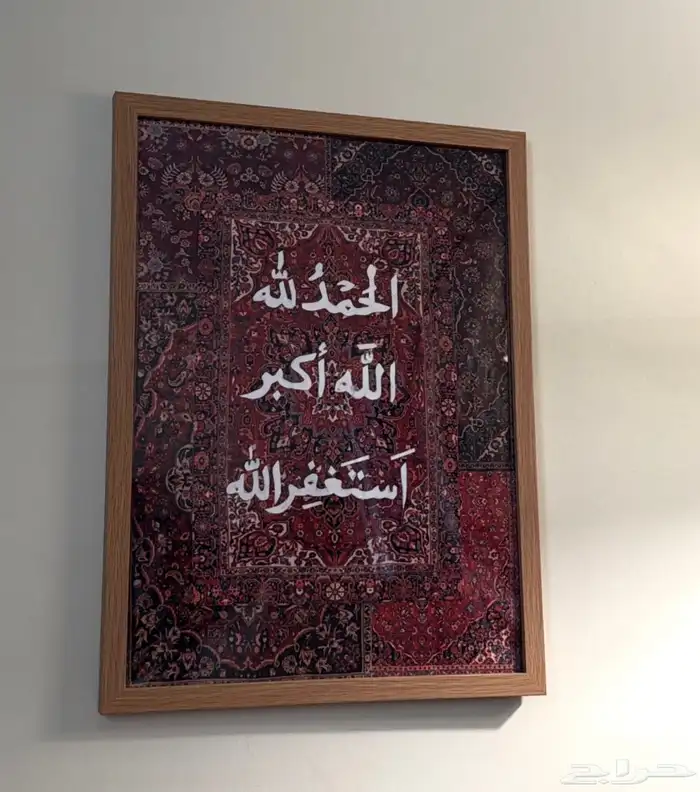 الحَمْدُ لله
اللَّه أكبر
اَستَغفِر الله
حراج